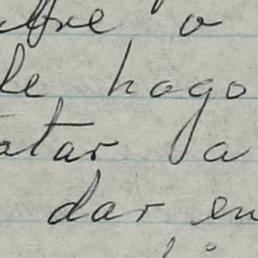 o
le hago
atar a
dar en